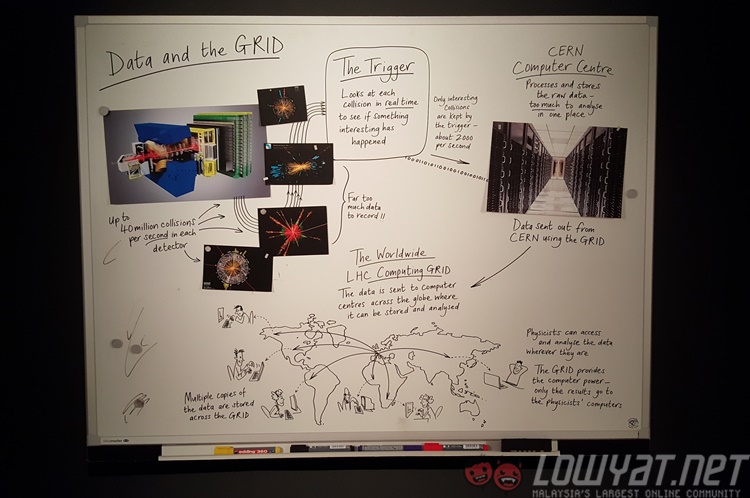 Data and the GRID
The Trigger
Looks at each
collision in real time
to see if something
interesting has
happened
Only interesting
collisions
are kept by
the trigger –
about 2000
per second
CERN
Computer Centre
Processes and stores
the raw data –
too much to analyse
in one place
Up to
40 million collisions
per second in each
detector
Far too
much data
to record!!
Data sent out from
CERN using the GRID
The Worldwide
LHC Computing GRID
The data is sent to computer
centres across the globe where
it can be stored and analysed
Physicists can access
and analyse the data
wherever they are
The GRID provides
the computer power –
only the results go to
the physicists' computers
Multiple copies of
the data are stored
across the GRID
edding 360
LOWYAT.NET
MALAYSIA'S LARGEST ONLINE COMMUNITY